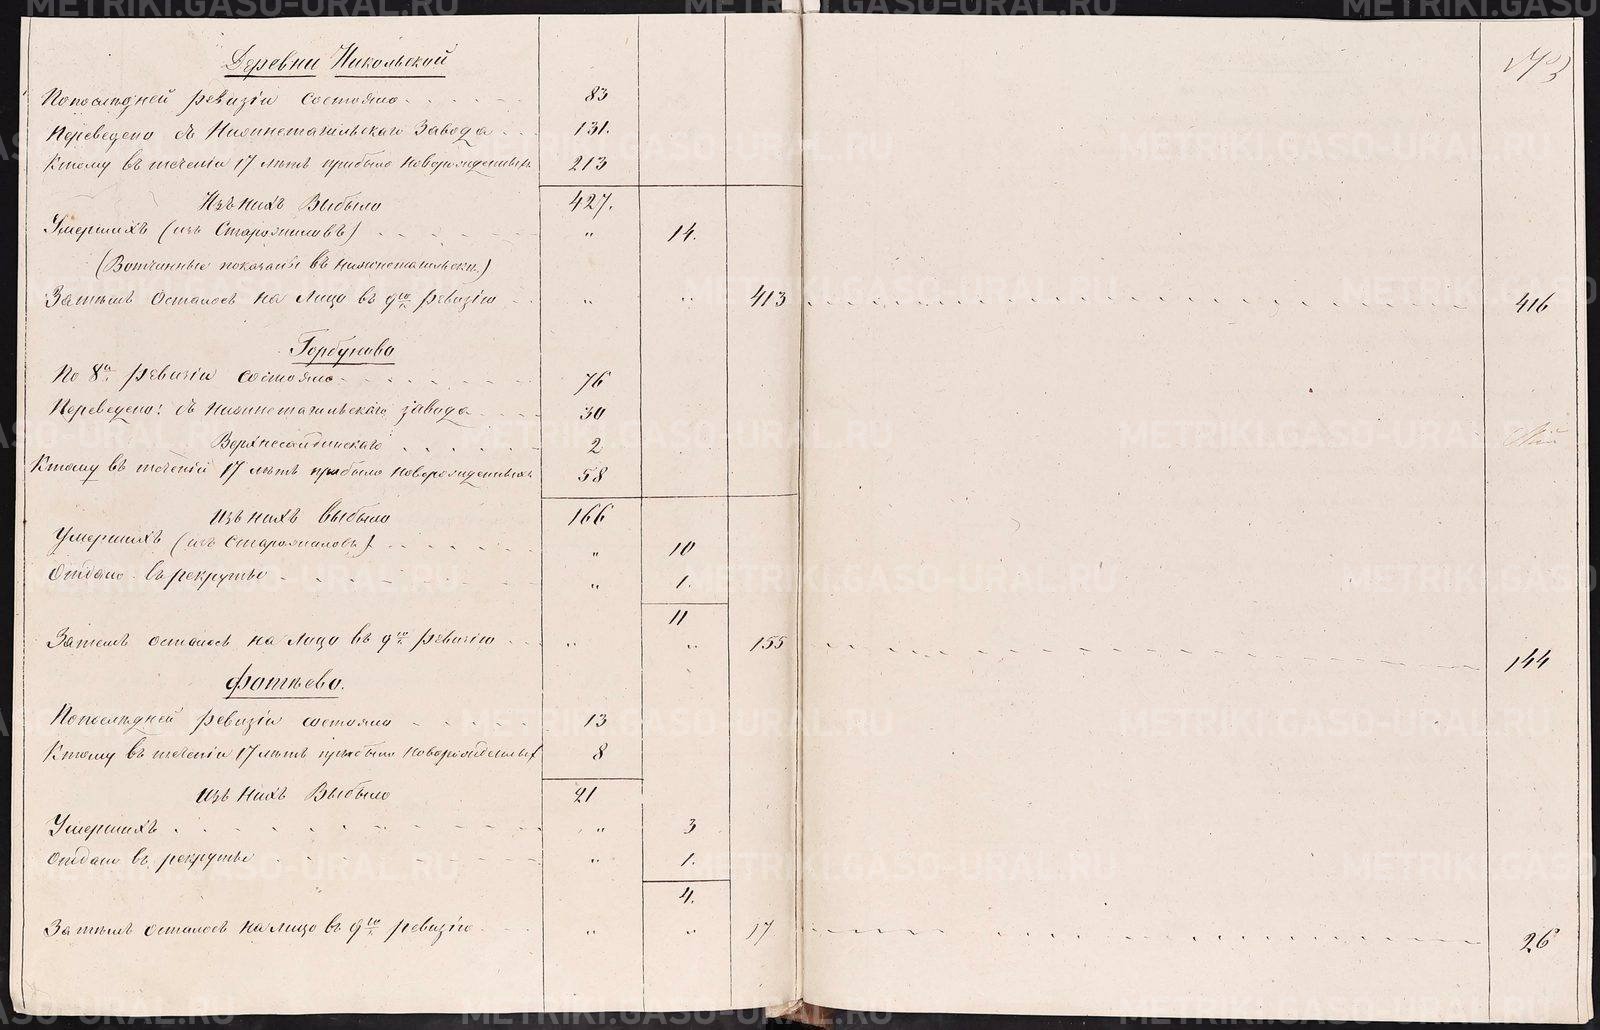 Деревни Никольский
По последней ревизіи состояло 83
Переведено съ Нижнетагильскаго Завода 131.
К тому въ теченіи 17 лѣтъ прибыло новорожденныхъ 213
Изъ нихъ Выбыло 427.
Умершихъ (изъ Старожиловъ) " 14.
(Вотчинные показаны въ Нижнетагильск.)
Затѣмъ Осталось на Лицо въ 9ю ревизію " " 413 416
Горбунова
По 8й ревизіи состояло 76
Переведено: съ Нижнетагильскаго завода 30
Верхнесалдинскаго 2
К тому въ теченіи 17 лѣтъ прибыло новорожденныхъ 58
Изъ нихъ выбыло 166
Умершихъ (изъ Старожиловъ) " 10
Отдано въ рекруты " 1.
11
Затемъ осталось на лицо въ 9ю ревизію " " 155 144
Фотѣева.
По последней ревизіи состояло 13
К тому въ теченіи 17 лѣтъ прибыло новорожденныхъ 8
Изъ нихъ Выбыло 21
Умершихъ " 3
Отдано въ рекруты " 1.
4.
Затѣмъ осталось на лицо въ 9ю ревизію " " 17 26
METRIKI.GASO-URAL.RU